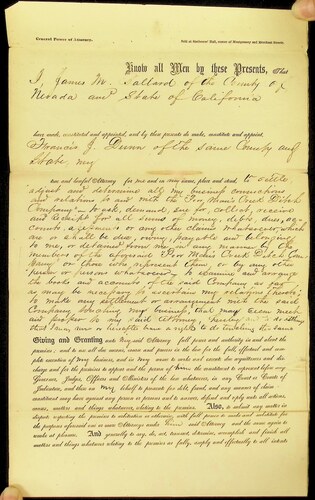 General Power of Attorney.
Know all Men by these Presents, That
I, James M. of the County of
Nevada and State of California
have made, constituted and appointed, and by these presents do make, constitute and appoint,
Francis J. Dunn of the same County and
State my
true and lawful Attorney for me and in my name, place and stead, to settle
adjust and determine all my business connections
and relations to and with the Poor Man's Creek Ditch
Company to ask, demand, sue for, collect, receive
and receipt for all sums of money, debts, dues, ac-
counts, and or any other claims whatsoever, which
are or shall be due, owing, payable and belonging
to me, or detained from me, in any manner by the
members of the aforesaid Poor Mans Creek Ditch Com-
pany or those who represent them or by any other
person or persons whatsoever, to examine and arrange
the books and accounts of the said Company as far
as may be necessary to ascertain my relations
to make any settlement or arrangement with the said
Company touching my business, that may seem meet
and proper to my said Attorney
that I may now or hereafter have a right to do touching the same
Giving and Granting unto my said Attorney full power and authority in and about the
premises; and to use all due means, course and process in the law for the full, effectual and com-
plete execution of the business, and in my name to make and execute due acquittance and dis-
charge; and for the premises to appear and the person of me the constituent to represent before any
Governor, Judges, Officers and Ministers of the law whatsoever, in any Court or Courts of
Judicature, and there on my behalf to pursue and for debt, fraud, and any manner of claim
instituted may have against any person or persons and to answer, defend and reply unto all actions,
causes, matters and things whatsoever, relating to the premises. Also, to submit any matter in
dispute respecting the premises to arbitration or otherwise, with full power to make and substitute for
the purposes aforesaid one or more Attorneys under said Attorney and the same again to
revoke at pleasure. And generally to say, do, act, transact, determine, accomplish and finish all
matters and things whatsoever relating to the premises as fully, amply and effectually to all intents